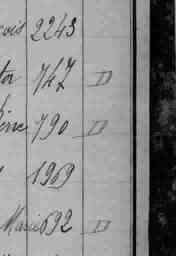 ois 2243
tor 747 D
ène 790 D
1969
Marie 692 D